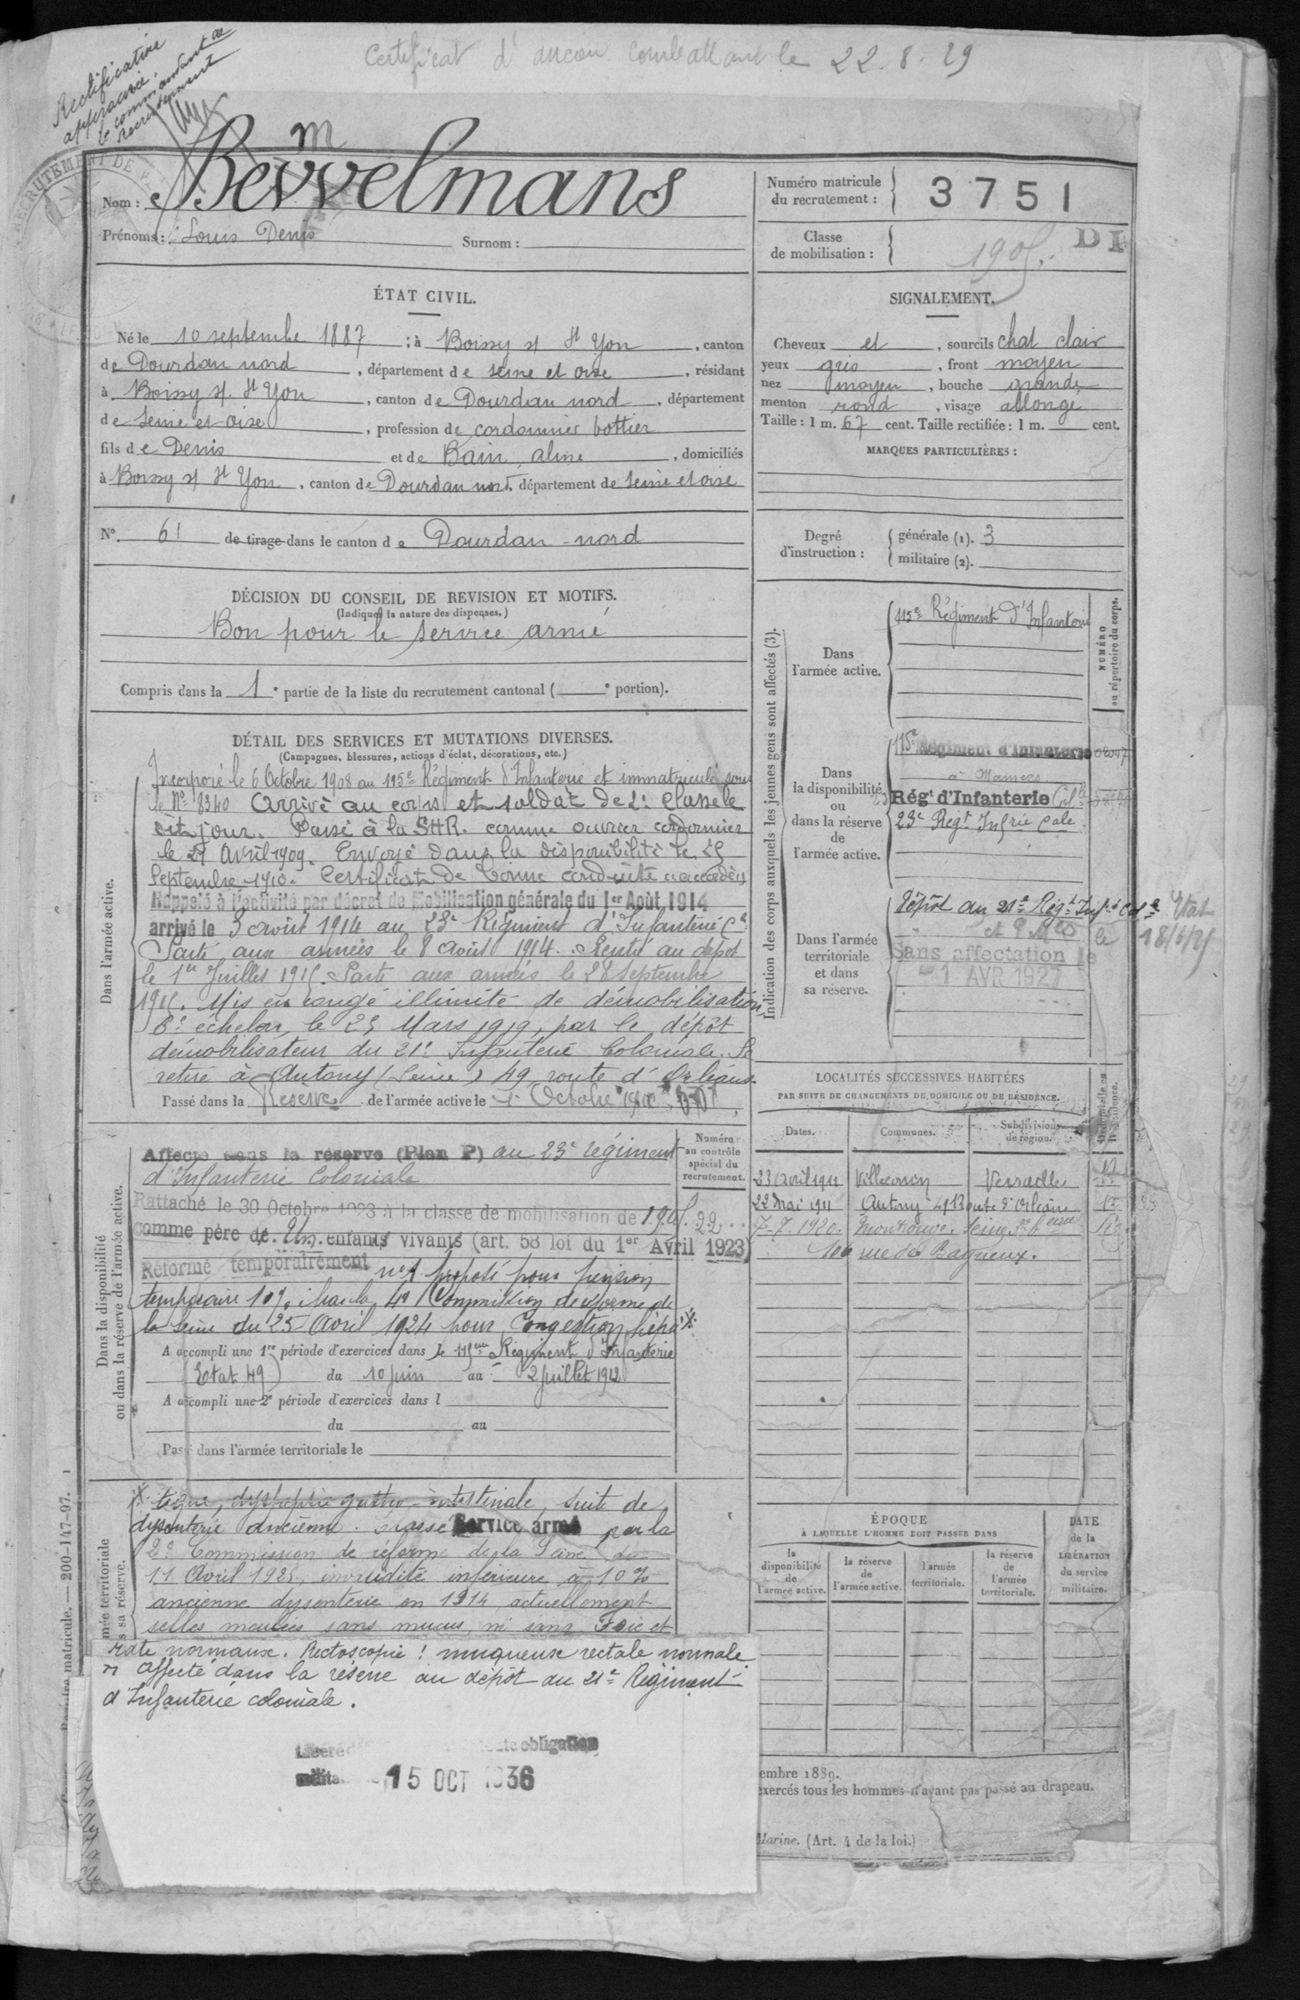 Certificat d'ancien Combattant le 22.8.29
Rectification
approuvée.
le commandant de
Recrutement
RECRUTEMENT DE
m
Nom : Bevvelmans
Prénoms : Louis Denis Surnom :
Numéro matricule
du recrutement : 3751
Classe
de mobilisation : 1905.
DI
ÉTAT CIVIL.
Né le 10 septembre 1887 ; à Boissy s/ St Yon, canton
de Dourdan nord, département de Seine et oise, résidant
à Boissy s/ St Yon, canton de Dourdan nord, département
de Seine et oise, profession de cordonnier bottier
fils de Denis et de Bain, aline, domiciliés
à Boissy s/ St Yon, canton de Dourdan nord, département de Seine et oise
N° 61 de tirage dans le canton de Dourdan-nord
SIGNALEMENT.
Cheveux et, sourcils chat clair
yeux gris, front moyen
nez moyen, bouche grande
menton rond, visage allongé
Taille : 1 m. 67 cent. Taille rectifiée : 1 m. cent.
MARQUES PARTICULIÈRES :
Degré
d'instruction :
générale (1). 3
militaire (2).
DÉCISION DU CONSEIL DE REVISION ET MOTIFS.
(Indiquer la nature des dispenses.)
Bon pour le service armé
Compris dans la 1e partie de la liste du recrutement cantonal ( e portion).
DÉTAIL DES SERVICES ET MUTATIONS DIVERSES.
(Campagnes, blessures, actions d'éclat, décorations, etc.)
Dans l'armée active.
Incorporé le 6 Octobre 1908 au 115e Régiment d'Infanterie et immatriculé sous
le No 8340 Arrivé au corps et soldat de 2e classe le
dit jour. Passé à la S.H.R. comme ouvrier cordonnier
le 27 Avril 1909. Envoyé dans la disponibilité le 25
Septembre 1910. Certificat de bonne conduite accordé.
Rappelé à l'activité par décret de Mobilisation générale du 1er Août 1914
arrivé le 3 août 1914 au 23e Régiment d'Infanterie Cle
Parti aux armées le 8 Août 1914. Rentré au dépôt
le 1er Juillet 1915. Parti aux armées le 28 Septembre
1915. Mis en congé illimité de démobilisation
8e échelon, le 25 Mars 1919, par le dépôt
démobilisateur du 21e Infanterie Coloniale. Se
retire à Antony (Seine) 49 route d'Orléans
Passé dans la Réserve de l'armée active le 1er Octobre 1910
Indication des corps auxquels les jeunes gens sont affectés (3).
Dans
l'armée active.
115e Régiment d'Infanterie
NUMÉRO
au répertoire du corps.
Dans
la disponibilité
ou
dans la réserve
de
l'armée active.
115e Régiment d'Infanterie
à Mamers
Régt d'Infanterie Cole
23e Regt Infrie Cale
Dans l'armée
territoriale
et dans
sa réserve.
Dépôt au 21e Régt Infie Cole
Sans affectation le
1 AVR 1927
Etat
le 18/4/25
Dans la disponibilité
ou dans la réserve de l'armée active.
Affecté dans la réserve (Plan P) au 23e régiment
d'Infanterie Coloniale
Rattaché le 30 Octobre 1923 à la classe de mobilisation de 1905
comme père de Un enfants vivants (art. 58 loi du 1er Avril 1923)
Réformé temporairement n°1 proposé pour pension
temporaire 10% par la 4e Commission de réforme de
la Seine du 25 Avril 1924 pour Congestion hépa*
A accompli une 1re période d'exercices dans le 115eme Régiment d'Infanterie
(Etat 49) du 10 juin au 2 juillet 1912
A accompli une 2e période d'exercices dans l
du au
Passé dans l'armée territoriale le
Numéro
au contrôle
spécial du
recrutement.
22
LOCALITÉS SUCCESSIVES HABITÉES
PAR SUITE DE CHANGEMENTS DE DOMICILE OU DE RÉSIDENCE.
Dates. Communes. Subdivisions
de région.
23 avril 1911 Villeconin Versailles
22 Mai 1911 Antony 49 Route d'Orléans
7-7-1920. Montrouge, Seine
106 rue de Bagneux.
* tique, dyspepsie gastro-intestinale, suite de
dysenterie ancienne. Classé Service armé par la
2e Commission de réforme de la Seine du
11 Avril 1928. invalidité inférieure à 10%
ancienne dysenterie en 1914, actuellement
selles moulées sans mucus, ni sang Foie et
rate normaux. Rectoscopie ! muqueuse rectale normale
Affecté dans la réserve au dépôt du 21e Régiment
d'Infanterie coloniale.
Libéré toute obligation
militaire 15 OCT 1936
ÉPOQUE
À LAQUELLE L'HOMME DOIT PASSER DANS
la
disponibilité
de
l'armée active.
la réserve
de
l'armée active.
l'armée
territoriale.
la réserve
de
l'armée
territoriale.
DATE
de la
LIBÉRATION
du service
militaire.
embre 1889.
exercés tous les hommes n'ayant pas passé au drapeau.
Marine. (Art. 4 de la loi.)
matricule. — 200-147-97.